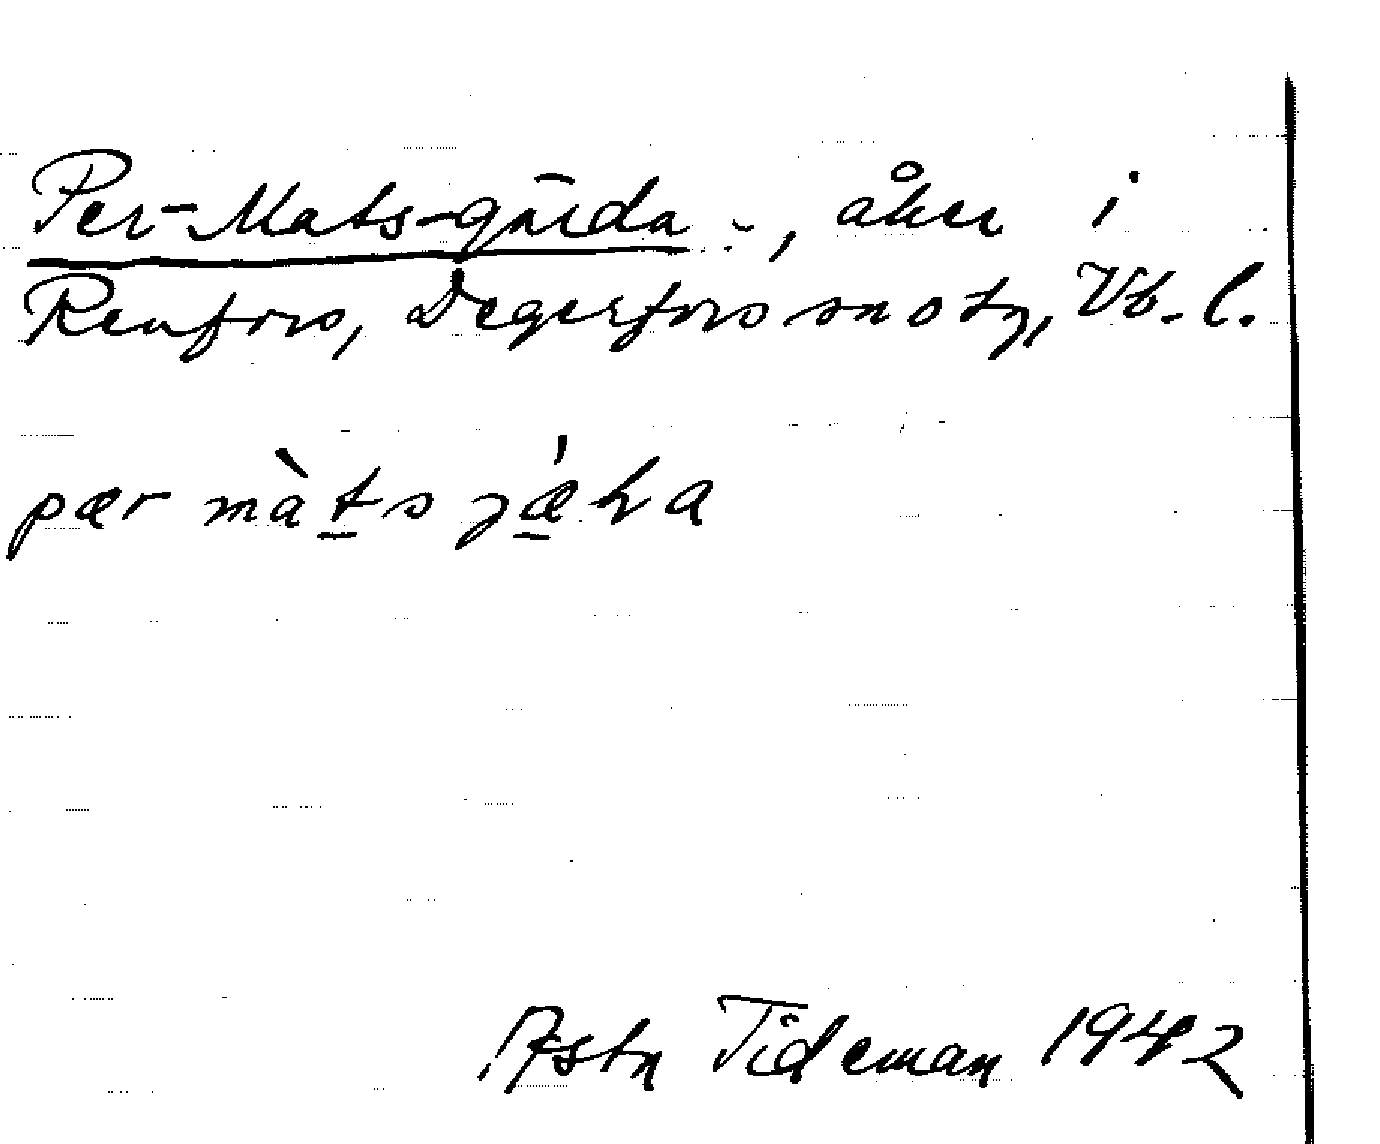 Per-Mats-gärda, åker i
Renfors, Degerfors sn o tg, Vb. l.
pær màts jæ̱ɽa
Asta Tideman 1942